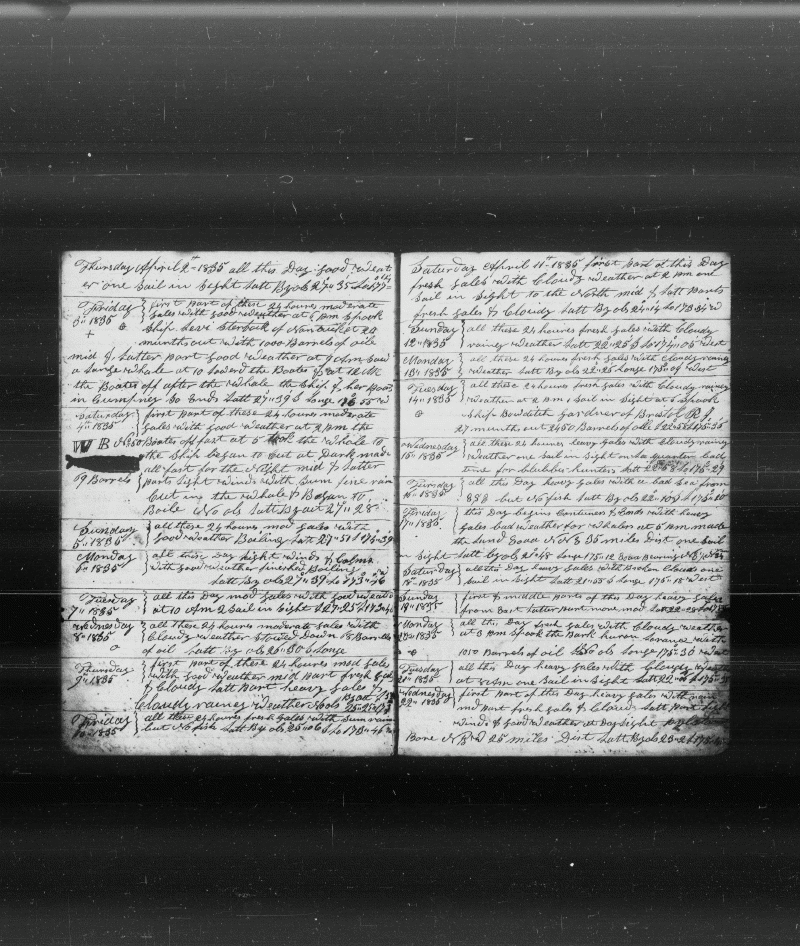 Thursday April 2nd 1835 all this Day good weat
er one Sail in Sight Latt By obs 27"35 Lo 177=
Friday first Part of these 24 hours moderate
3" 1835 Gales with good weather at 5 Pm Spook
Ship Levi Sterbuck of Nantucket 24
munths out with 1000 Barrels of oil
mid & Latter Part good weather at 9 Am Saw
a Large whale at 10 Lowerd the Boates & at 12 M
the Boates off after the whale the Ship & her Boats
in Cumpney So Ends Latt 27"39 S Longe 176"55 W
Saturday first Part of these 24 hours moderate
4" 1835 Gales with good weather at 2 Pm the
W B No 50 Boates got fast at 5 took the whale to
the Ship Began to Cut at Dark made
all fast for the Night mid & Latter
19 Barrels Parts Light winds with Sum fine rain
Cut in the whale & Began to
Boile No obs Latt By act 27"28
Sunday all these 24 hours mod Gales with
5" 1835 Good weather Boiling Latt 27"51
Monday all these Day Light winds & Calms
6" 1835 with good weather finished Boiling
Latt By obs 27"37 Lo 173"46
Tuesday all this Day mod Gales with good weather
7" 1835 at 10 Am 2 Sail in Sight
Wednesday all these 24 hours moderate Gales with
8" 1835 Cloudy weather Stowed Down 18 Barrells
of oil Latt By obs 26"30 S Longe
Thursday first Part of these 24 hours mod Gales
9" 1835 with Good weather mid Part fresh Gales
& Cloudy Latt Part heavy Gales &
Cloudy rainey weather
Friday all these 24 hours fresh Gales with Sum rain
10" 1835 but No fish Latt By obs
Saturday April 11" 1835 first Part of this Day
fresh Gales with Cloudy weather at 2 Pm one
Sail in Sight to the North mid & Latt Parts
fresh Gales & Cloudy Latt By obs 24"14 Lo 173"34 W
Sunday all these 24 hours fresh Gales with Cloudy
12" 1835 rainey weather Latt 22"25 S Lo 174"05 West
Monday all these 24 hours fresh Gales with Cloudy rainy
13" 1835 weather Latt By obs 22"25 Longe 175"09 West
Tuesday all these 24 hours fresh Gales with Cloudy rainey
14" 1835 weather at 2 Pm 1 Sail in Sight at 5 Spook
Ship Bowditch Gardner of Bristol R I
27 munth out 2450 Barrels of oil
Wednesday all these 24 hours heavy Gales with Cloudy rainy
15" 1835 weather one Sail in Sight on Lo quarter bad
time for Blubber hunters Latt
Thursday all this Day heavy Gales with a bad Sea from
16" 1835 ESE but No fish Latt By obs 22"10 S
Friday this Day begins Continers & Ends with heavy
17" 1835 Gales bad weather for whalen at 6 Pm made
the Land Eooa N W & 35 miles Dist one Sail
in Sight Latt By obs 21"48 Longe 175"12
Saturday all this Day heavy Gales with Broken Clouds one
18" 1835 Sail in Sight Latt 21"55 S Longe 175"18 West
Sunday first & middle Parts of this Day heavy Gales
19" 1835 from East Latter Part more mod
Monday all this Day fresh Gales with Cloudy weather
20" 1835 at 3 Pm Spook the Bark huron
1010 Barrels of oil Longe 175"30 West
Tuesday all this Day heavy Gales with Cloudy weather
21" 1835 at 2 Am one Sail in Sight Latt 22"
Wednesday first Part of this Day heavy Gales with rain
22" 1835 mid Part fresh Gales & Cloudy Latt Part Light
winds & good weather at Day Light
25 miles Dist Latt By obs